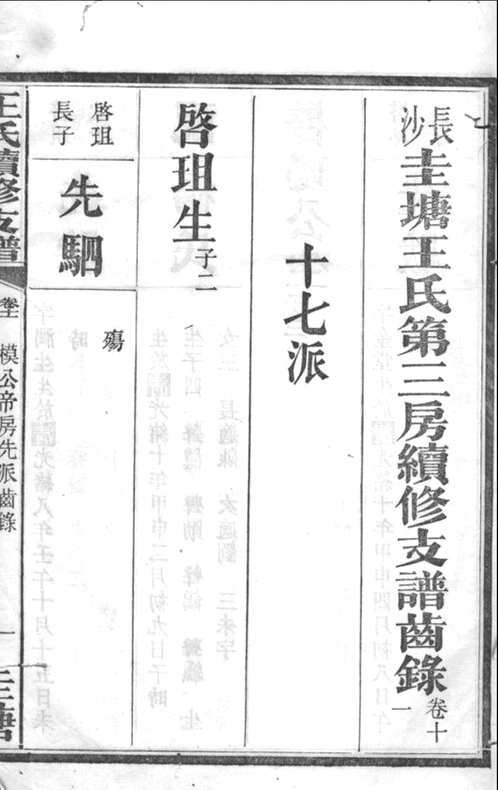 長沙圭塘王氏第三房續修支譜齒錄 卷十一
十七派
啓珇生 子二
啓珇長子
先駟 殤
王氏續修支譜 卷十一 模公帝房先派齒錄 一 圭塘